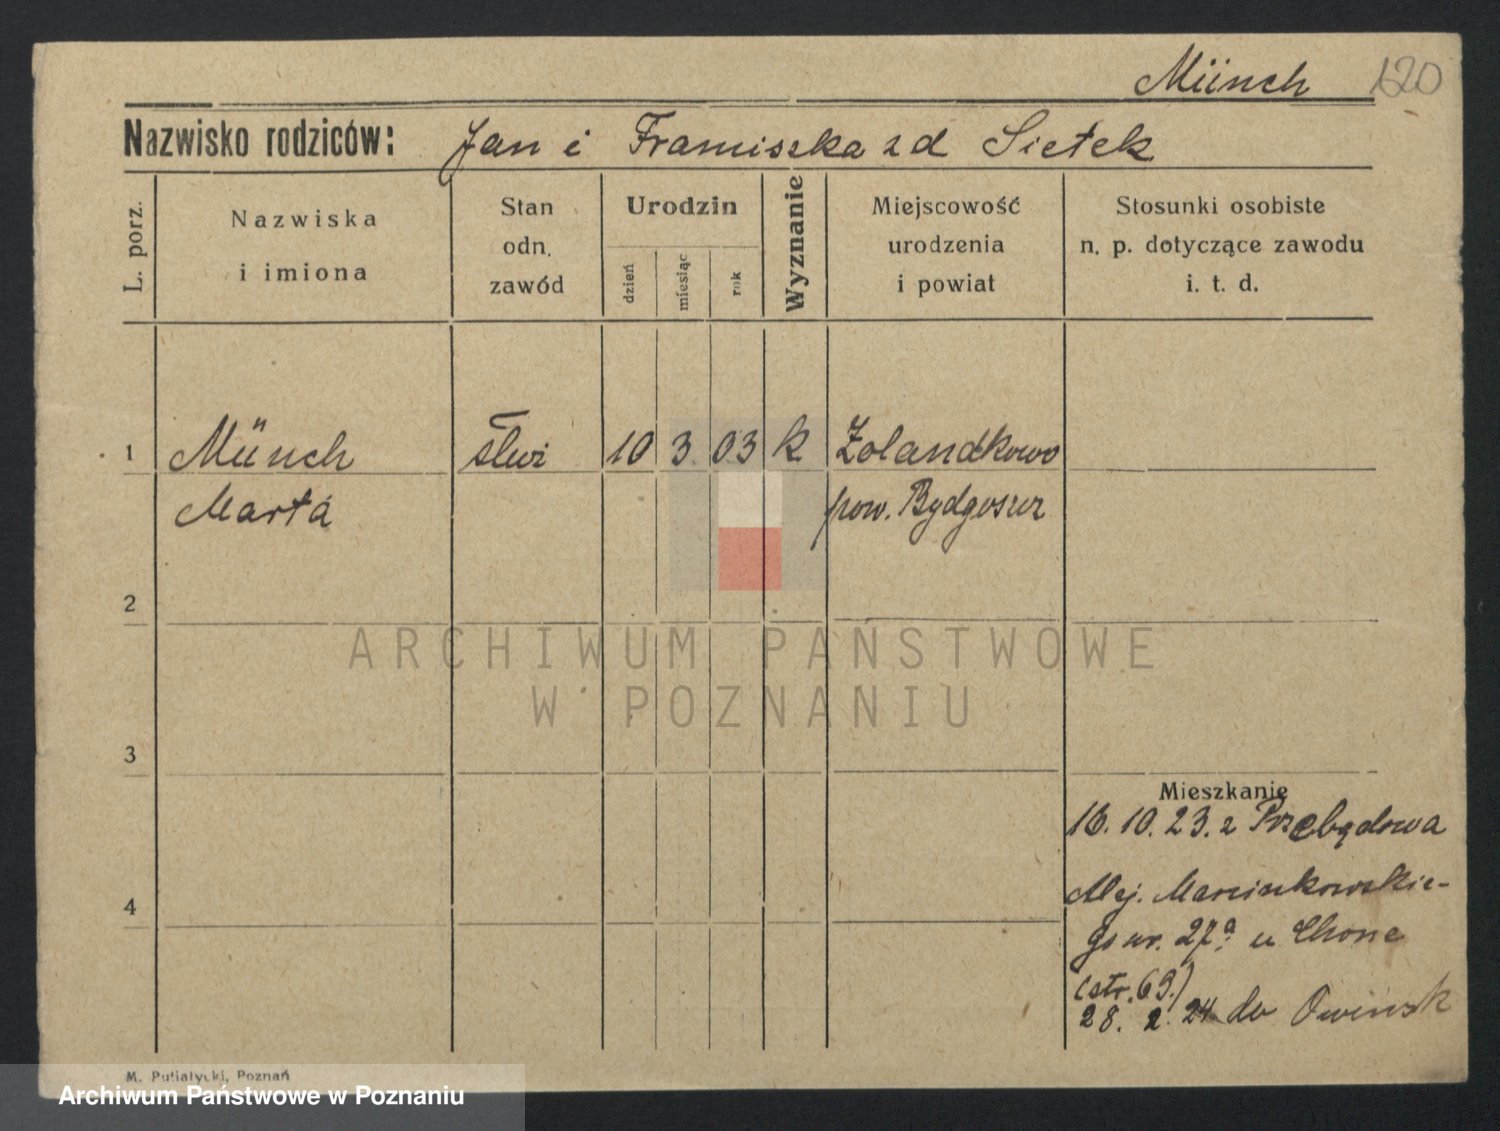 Münch 120
Nazwisko rodziców: Jan i Franciszka z d Sietek
L. porz.
Nazwiska
i imiona
Stan
odn.
zawód
Urodzin
dzień
miesiąc
rok
Wyznanie
Miejscowość
urodzenia
i powiat
Stosunki osobiste
n. p. dotyczące zawodu
i. t. d.
1 Münch 10 3 03 k Zolandkowo
Marta pow. Bydgoszcz
2
ARCHIWUM PAŃSTWOWE
W POZNANIU
3
Mieszkanie
16. 10. 23. z Przebędowa
4
Alej. Marcinkowskie-
go nr. 27a u Chone
(str. 69.)
28. 2. 24 do Owińsk
M. Putiatycki, Poznań
Archiwum Państwowe w Poznaniu